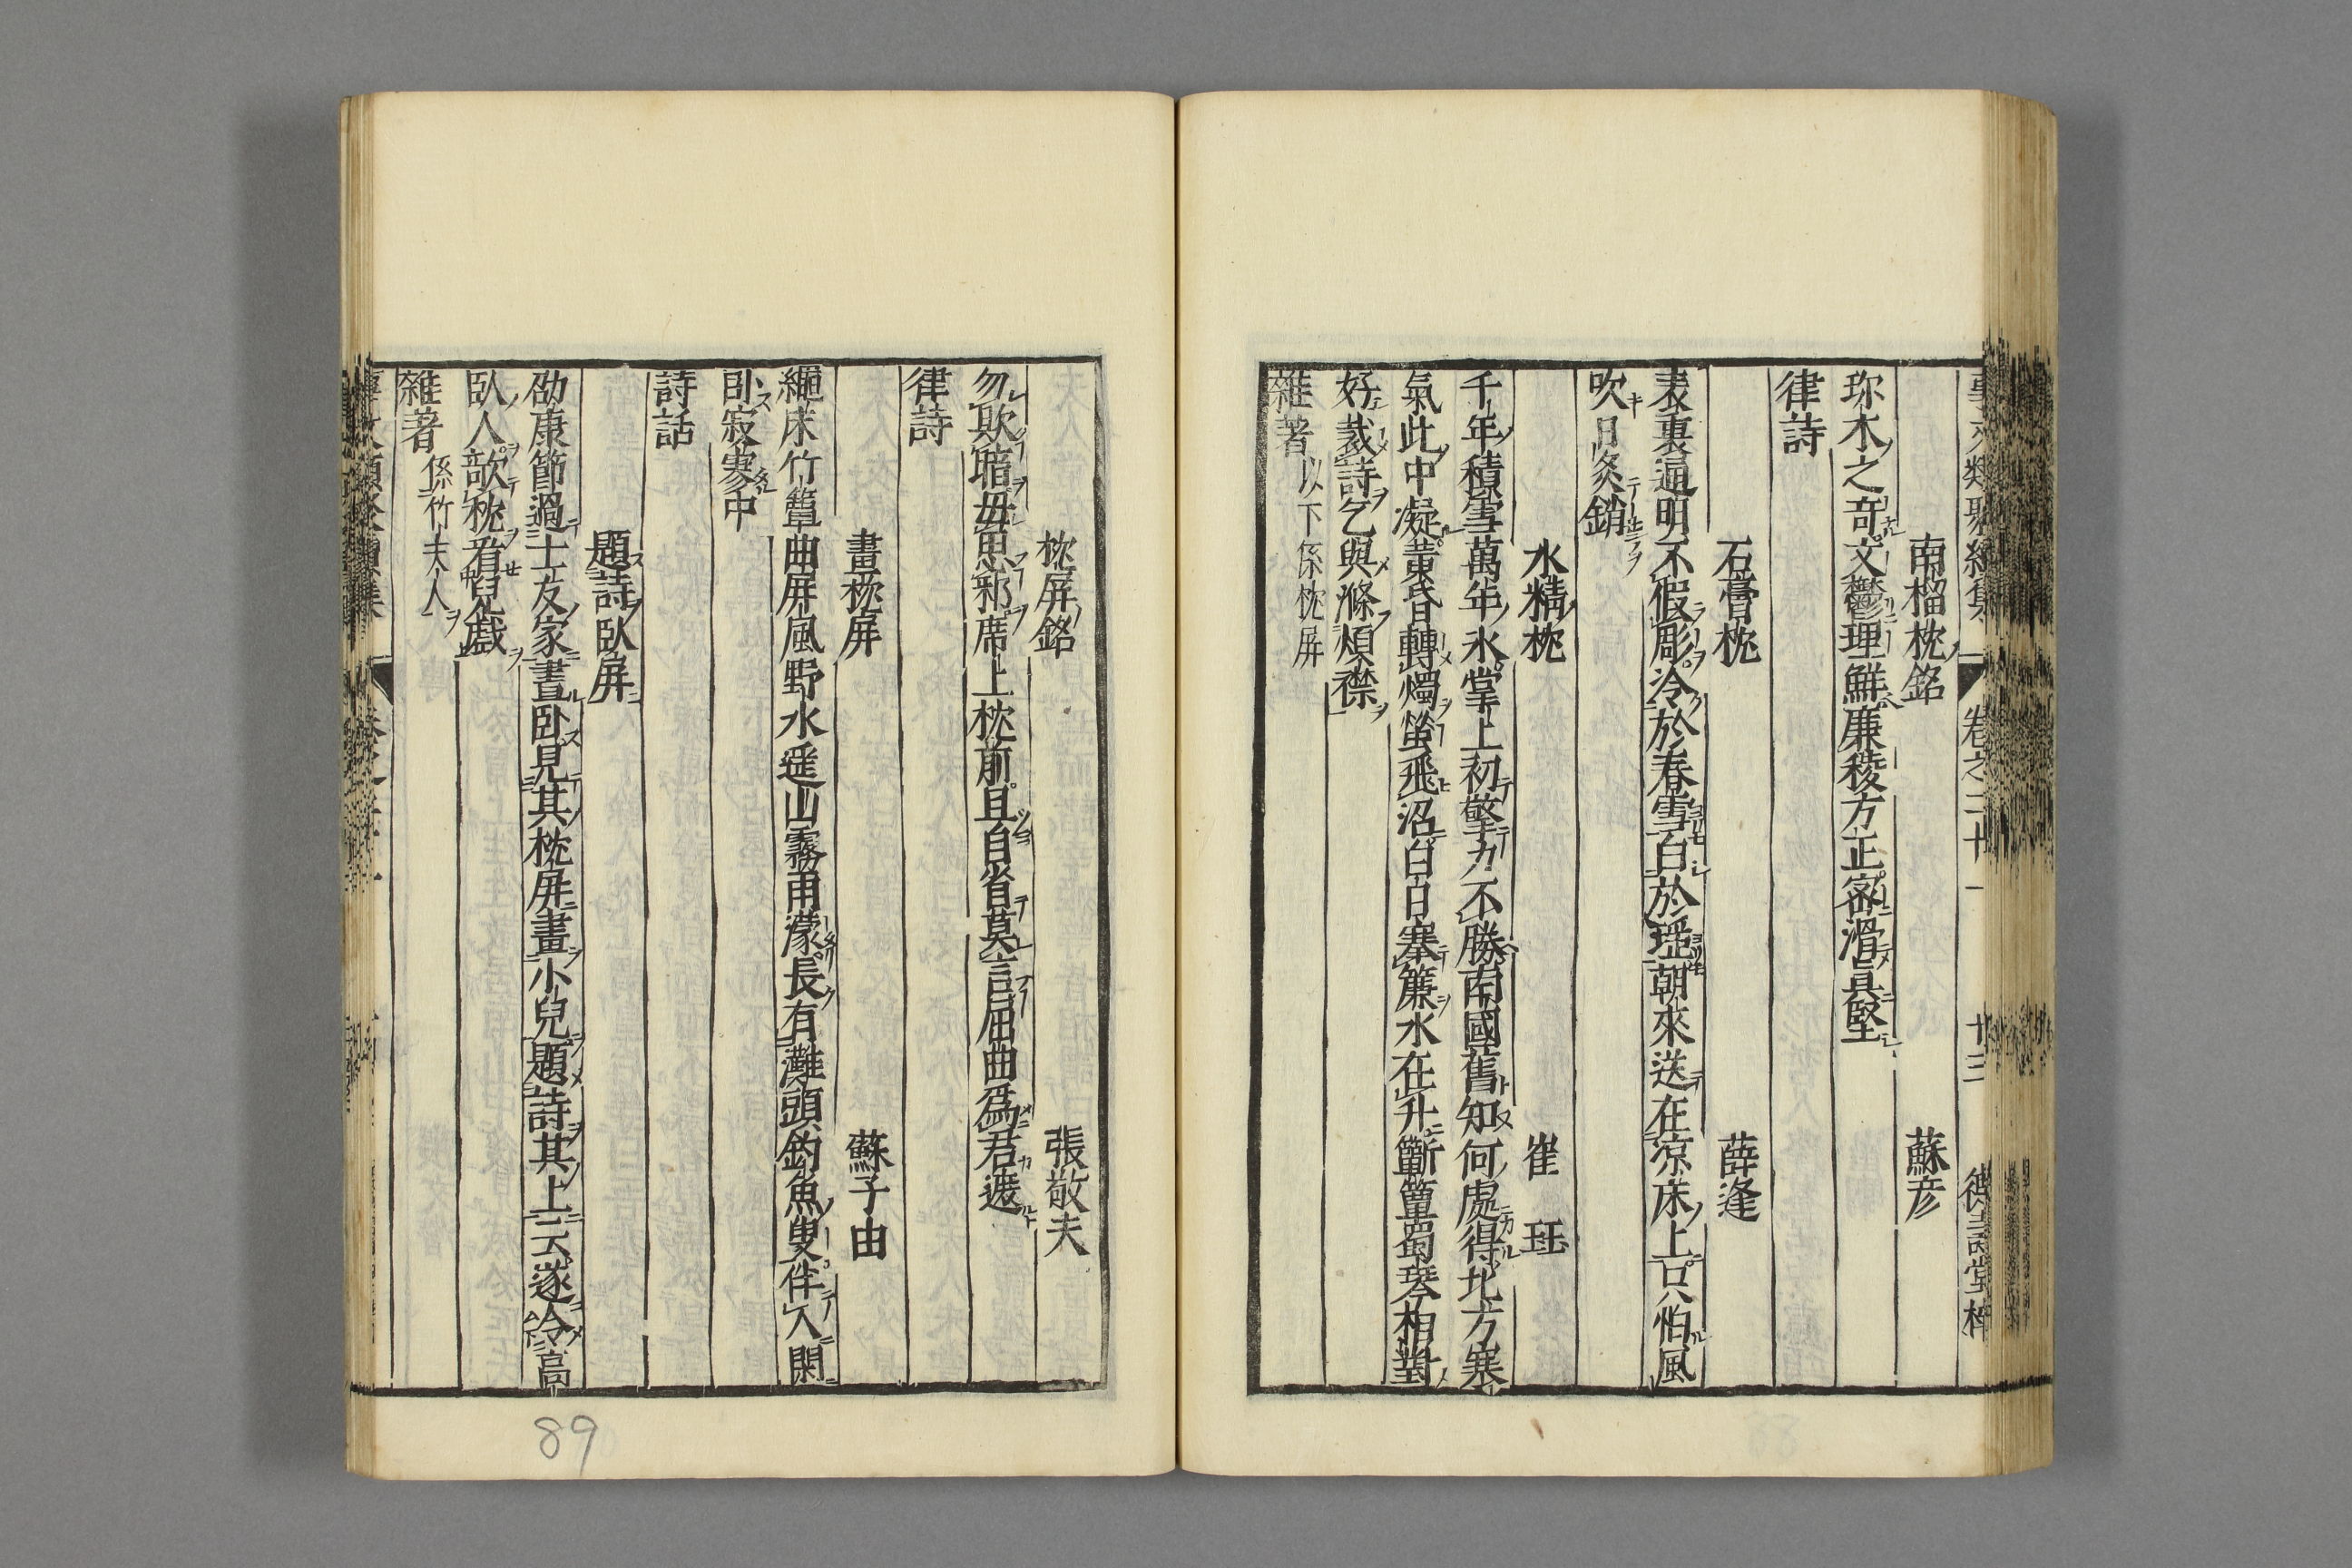 事文類聚續集　卷之二十一　廿三　德壽堂梓
南榴枕銘　蘇彦
珎木之奇文欝理鮮廉稜方正密滑貞堅
律詩
石膏枕　薛逢
表裏通明不假彫冷於春雪白於瑶朝來送在凉床上只怕風
吹日炙銷
水精枕　崔珏
千年積雪萬年氷掌上初擎力不勝南國舊知何處得北方寒
氣此中凝黄昏轉燭螢飛沼白日搴簾水在升蘄簟蜀琴相對
好裁詩乞與滌煩襟
雜著以下係枕屏
枕屏銘　張敬夫
勿欺暗毋思邪席上枕前且自省莫言屈曲爲君遮
律詩
畫枕屏　蘇子由
繩床竹簟曲屏風野水遥山霧雨濛長有灘頭釣魚叟伴人閑
卧寂寥中
詩話
題詩臥屏
邵康節過士友家晝卧見其枕屏畫小兒題詩其上云遂令高
臥人欹枕看兒戲
雜著係竹夫人
89